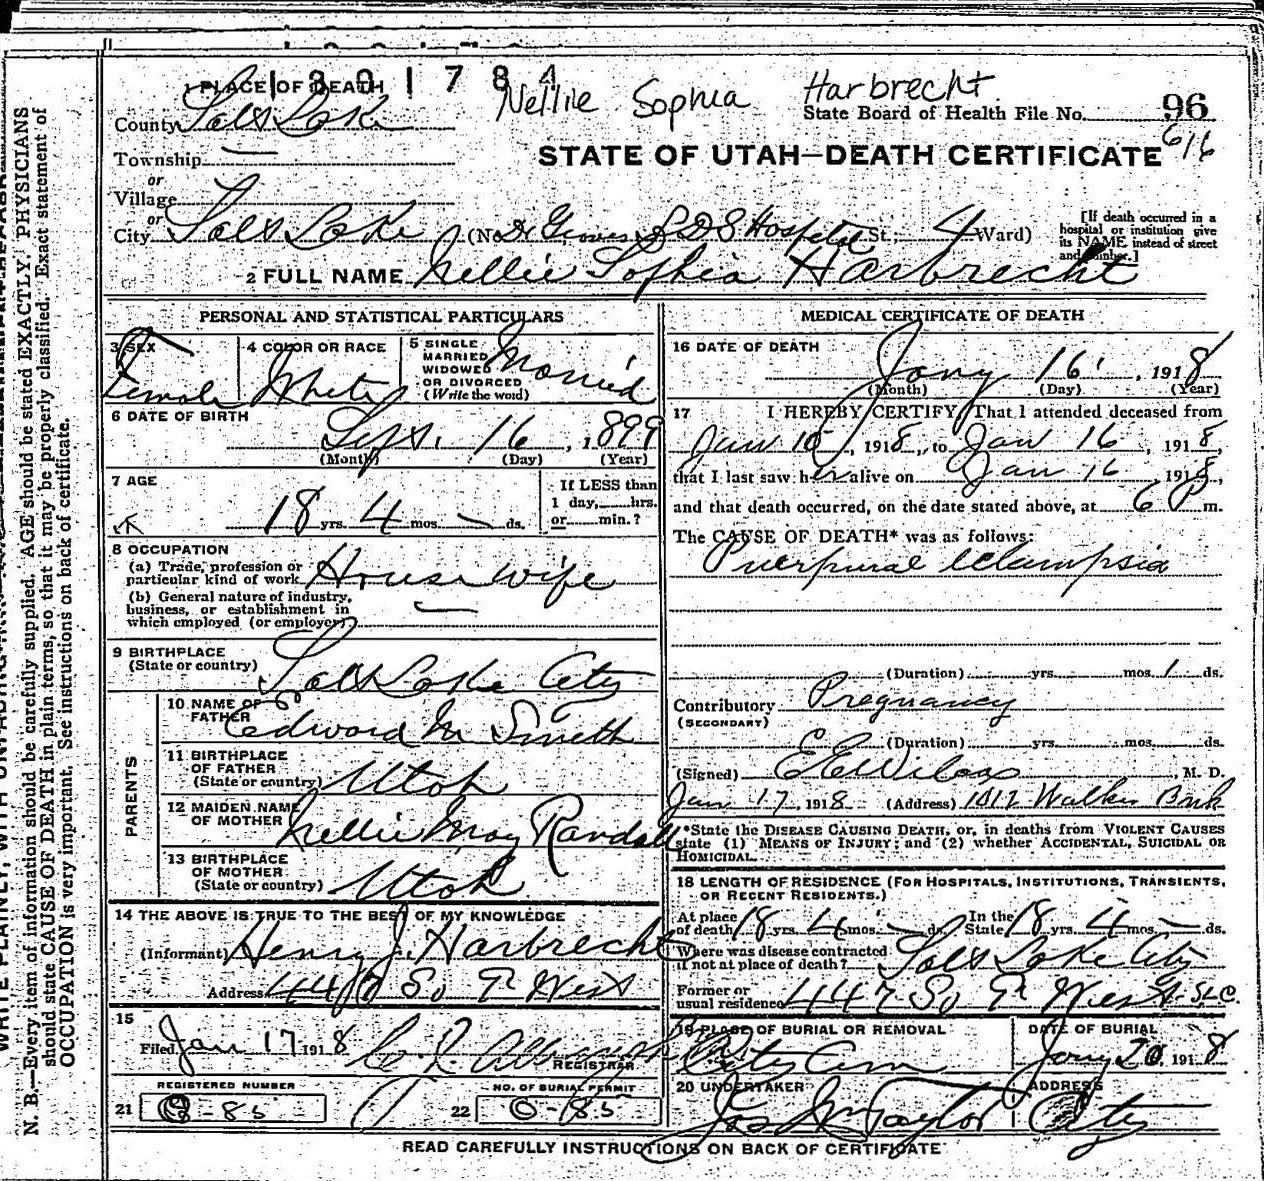 1301784
Nellie Sophia Harbrecht
1 PLACE OF DEATH
County Salt Lake
State Board of Health File No. 96
616
Township —
or
Village
or
City Salt Lake (No. Dr Groves L D S Hospital St. 4 Ward)
STATE OF UTAH—DEATH CERTIFICATE
[If death occurred in a
hospital or institution give
its NAME instead of street
and number.]
2 FULL NAME Nellie Sophia Harbrecht
PERSONAL AND STATISTICAL PARTICULARS
3 SEX
Female
4 COLOR OR RACE
White
5 SINGLE
MARRIED
WIDOWED
OR DIVORCED
(Write the word)
Married
6 DATE OF BIRTH
Sept. 16, 1899
(Month) (Day) (Year)
7 AGE
18 yrs. 4 mos. — ds.
If LESS than
1 day, hrs.
or min.?
8 OCCUPATION
(a) Trade, profession or
particular kind of work House wife
(b) General nature of industry,
business, or establishment in
which employed (or employer) —
9 BIRTHPLACE
(State or country) Salt Lake City
PARENTS
10 NAME OF
FATHER Edward M Smith
11 BIRTHPLACE
OF FATHER
(State or country) Utah
12 MAIDEN NAME
OF MOTHER Nellie May Randall
13 BIRTHPLACE
OF MOTHER
(State or country) Utah
14 THE ABOVE IS TRUE TO THE BEST OF MY KNOWLEDGE
(Informant) Henry J. Harbrecht
Address 447 So West
15
Filed Jan 17 1918
REGISTRAR
REGISTERED NUMBER
21 -85
NO. OF BURIAL PERMIT
22 0-85
MEDICAL CERTIFICATE OF DEATH
16 DATE OF DEATH
Jany 16, 1918
(Month) (Day) (Year)
17 I HEREBY CERTIFY, That I attended deceased from
Jan, 1918, to Jan 16, 1918,
that I last saw her alive on Jan 16 1918,
and that death occurred, on the date stated above, at 6 P m.
The CAUSE OF DEATH* was as follows:
Puerpural eclampsia
(Duration) yrs. mos. 1 ds.
Contributory Pregnancy
(SECONDARY)
(Duration) yrs. mos. ds.
(Signed) E E Wilcox, M. D.
Jan 17, 1918 (Address) 1412 Walker Bnk
*State the DISEASE CAUSING DEATH, or, in deaths from VIOLENT CAUSES
state (1) MEANS OF INJURY; and (2) whether ACCIDENTAL, SUICIDAL OR
HOMICIDAL.
18 LENGTH OF RESIDENCE (FOR HOSPITALS, INSTITUTIONS, TRANSIENTS,
OR RECENT RESIDENTS.)
At place
of death 18 yrs. 4 mos. — ds.
In the
State 18 yrs. 4 mos. — ds.
Where was disease contracted
if not at place of death? Salt Lake City
Former or
usual residence 447 So West St. SLC.
19 PLACE OF BURIAL OR REMOVAL
City Cem
DATE OF BURIAL
Jany 20 1918
20 UNDERTAKER
Jos Wm Taylor
ADDRESS
City
READ CAREFULLY INSTRUCTIONS ON BACK OF CERTIFICATE
N. B.—Every item of information should be carefully supplied. AGE should be stated EXACTLY. PHYSICIANS
should state CAUSE OF DEATH in plain terms, so that it may be properly classified. Exact statement of
OCCUPATION is very important. See instructions on back of certificate.